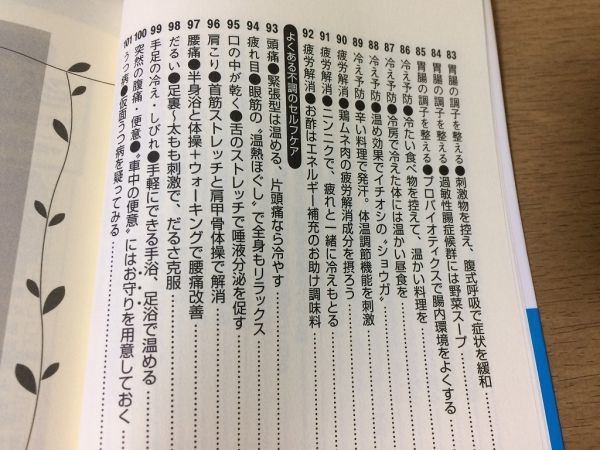 83 胃腸の調子を整える●刺激物を控え、腹式呼吸で症状を緩和
84 胃腸の調子を整える●過敏性腸症候群には野菜スープ
85 胃腸の調子を整える●プロバイオティクスで腸内環境をよくする
86 冷え予防●冷たい食べ物を控えて、温かい料理を
87 冷え予防●冷房で冷えた体には温かい昼食を
88 冷え予防●温め効果でイチオシの〝ショウガ〟
89 冷え予防●辛い料理で発汗。体温調節機能を刺激
90 疲労解消●鶏ムネ肉の疲労解消成分を摂ろう
91 疲労解消●ニンニクで、疲れと一緒に冷えもとる
92 疲労解消●お酢はエネルギー補充のお助け調味料
よくある不調のセルフケア
93 頭痛●緊張型は温める、片頭痛なら冷やす
94 疲れ目●眼筋の〝温熱ほぐし〟で全身もリラックス
95 口の中が乾く●舌のストレッチで唾液分泌を促す
96 肩こり●首筋ストレッチと肩甲骨体操で解消
97 腰痛●半身浴と体操＋ウォーキングで腰痛改善
98 だるい●足裏〜太もも刺激で、だるさ克服
99 手足の冷え・しびれ●手軽にできる手浴、足浴で温める
100 突然の腹痛・便意●〝車中の便意〟にはお守りを用意しておく
101 うつ病●仮面うつ病を疑ってみる